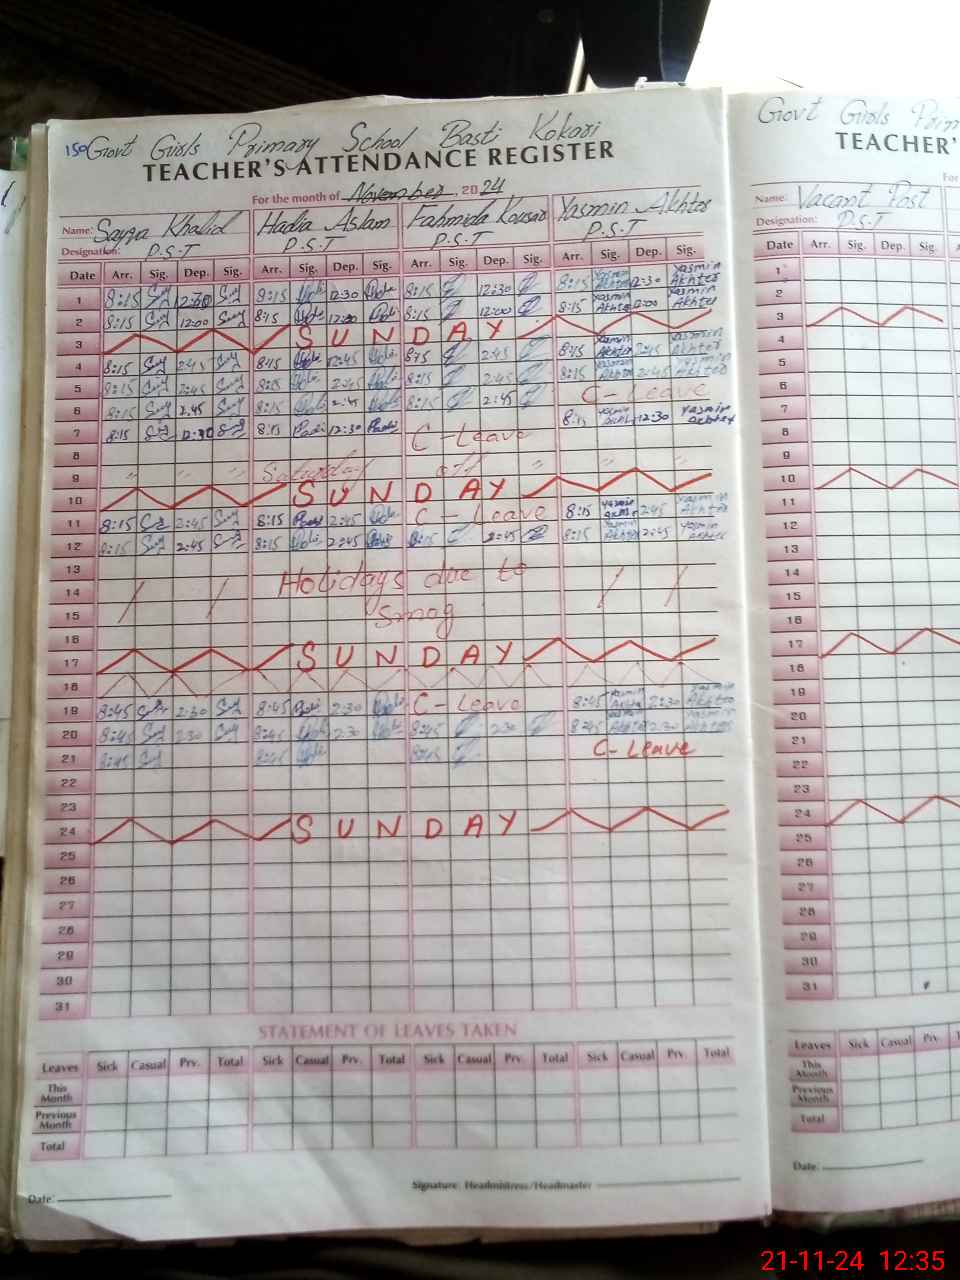 150 Govt Girls Primary School Basti Kokari
TEACHER'S ATTENDANCE REGISTER
For the month of November 2024
Name: Sayya Khalid Hadia Aslam Fahmida Kousar Yasmin Akhter
Designation: P.S.T P.S.T P.S.T P.S.T
Date Arr. Sig. Dep. Sig. Arr. Sig. Dep. Sig. Arr. Sig. Dep. Sig. Arr. Sig. Dep. Sig.
1 8:15 12:30 8:15 12:30 8:15 12:30 8:15 Yasmin Akhter 12:30 Yasmin Akhter
2 8:15 12:00 8:15 12:00 8:15 12:00 8:15 Yasmin Akhter 12:00 Yasmin Akhter
3 SUNDAY
4 8:15 2:45 8:15 2:45 8:15 2:45 8:15 Yasmin Akhter 2:45 Yasmin Akhter
5 8:15 2:45 8:15 2:45 8:15 2:45 8:15 Yasmin Akhter 2:45 Yasmin Akhter
6 8:15 2:45 8:15 2:45 8:15 2:45 C-Leave
7 8:15 12:30 8:15 12:30 C-Leave 8:15 Yasmin Akhter 12:30 Yasmin Akhter
8
9 " " " Saturday off " " "
10 SUNDAY
11 8:15 2:45 8:15 2:45 C-Leave 8:15 Yasmin Akhter 2:45 Yasmin Akhter
12 8:15 2:45 8:15 2:45 8:15 2:45 8:15 Yasmin Akhter 2:45 Yasmin Akhter
13
14 Holidays due to
15 Smog
16
17 SUNDAY
18
19 8:45 2:30 8:45 2:30 C-Leave 8:45 Yasmin Akhter 2:30 Yasmin Akhter
20 8:45 2:30 8:45 2:30 8:45 2:30 8:45 Yasmin Akhter 2:30 Yasmin Akhter
21 8:45 8:45 8:45 C-Leave
22
23
24 SUNDAY
25
26
27
28
29
30
31
STATEMENT OF LEAVES TAKEN
Leaves Sick Casual Prv. Total Sick Casual Prv. Total Sick Casual Prv. Total Sick Casual Prv. Total
This Month
Previous Month
Total
Date:
Signature: Headmistress/Headmaster
Govt Girls Prim
TEACHER'
For
Name: Vacant Post
Designation: P.S.T
Date Arr. Sig. Dep. Sig.
1
2
3
4
5
6
7
8
9
10
11
12
13
14
15
16
17
18
19
20
21
22
23
24
25
26
27
28
29
30
31
Leaves Sick Casual Prv.
This Month
Previous Month
Total
Date:
21-11-24 12:35